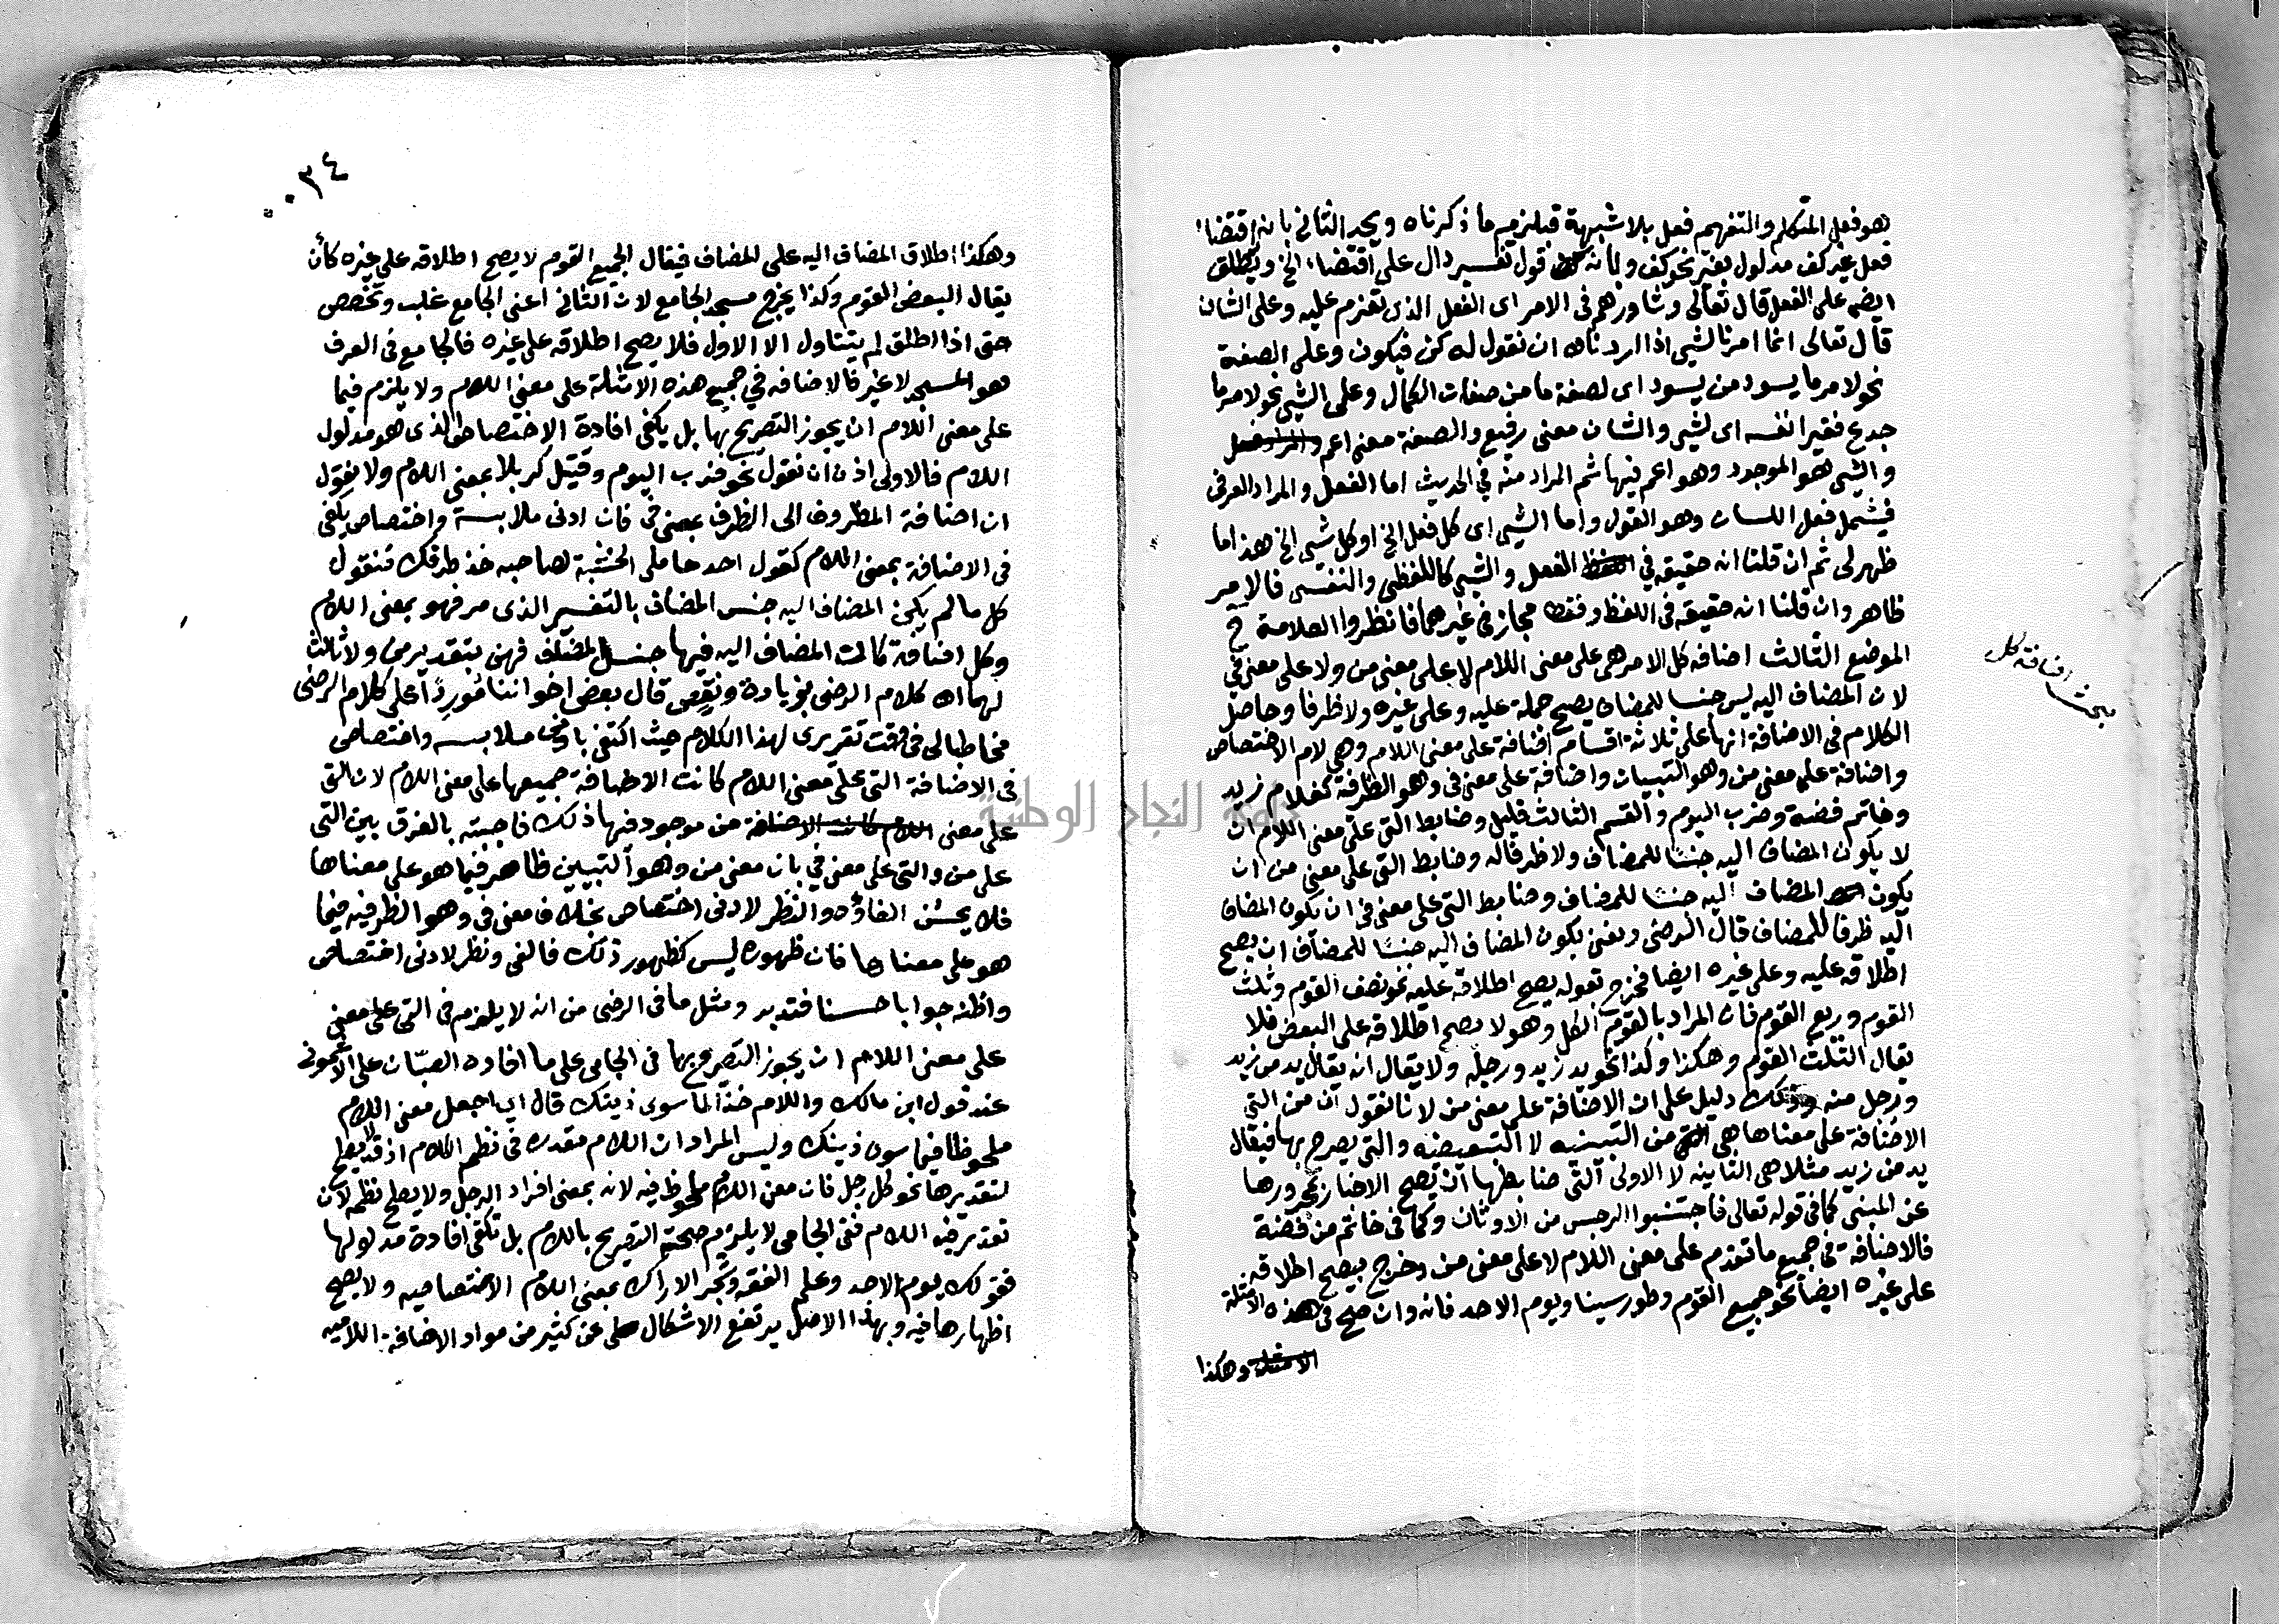 هو فعل المتكلم والتفهيم فعل بلا شبهة فيلزمهم ما ذكرناه ويحد الثاني بانه اقتضاء
فعل غير كف مدلول بغير نحو كف وبأنه قول نفسي دال على اقتضاء الخ ويطلق
ايضا على الفعل قال تعالى وشاورهم في الامر اى الفعل الذى تعزم عليه وعلى الشان
قال تعالى انما امرنا لشيى اذا اردناه ان نقول له كن فيكون وعلى الصفة
نحو لامر ما يسود من يسود اى لصفة ما من صفات الكمال وعلى الشيى نحو لامر ما
جدع قصير انفه اى لشيى والشان معنى رفيع والصفة معنى اعم
والشيى هو الموجود وهو اعم فيها ثم المراد منه في الحديث اما الفعل والمراد العرفى
فيشمل فعل اللسان وهو القول واما الشيى اى كل فعل الخ او كل شيى الخ هذا ما
ظهر لى ثم ان قلنا انه حقيقه في الفعل والشيى كاللفظى والنفسى فالامر
ظاهر وان قلنا انه حقيقه فى اللفظ فقط مجاز فى غيرهما فانظروا العلامة ح
بحث اضافة كل
الموضع الثالث اضافة كل الامر هى على معنى اللام لا على معنى من ولا على معنى في
لان المضاف اليه ليس جنسا للمضاف يصح حمله عليه وعلى غيره ولا ظرفا وحاصل
الكلام فى الاضافة انها على ثلاثة اقسام اضافة على معنى اللام وهي لام الاختصاص
واضافة على معنى من وهو التبيان واضافة على معنى فى وهو الظرفة كغلام زيد
وخاتم فضة وضرب اليوم والقسم الثالث قليل وضابط التى على معنى اللام ان
لا يكون المضاف اليه جنسًا للمضاف ولا ظرفا له وضابط التى على معنى من ان
يكون المضاف اليه جنسًا للمضاف وضابط التى على معنى فى ان يكون المضاف
اليه ظرفا للمضاف قال الرضى ونعنى بكون المضاف اليه جنسًا للمضاف ان يصح
اطلاقه عليه وعلى غيره ايضا فخرج بقوله يصح اطلاقه عليه نحو نصف القوم وثلث
القوم وربع القوم فان المراد بالقوم الكل وهو لا يصح اطلاقه على البعض فلا
يقال الثلث القوم وهكذا وكذا نحو يد زيد ورجله ولا يقال انه يقال يد من زيد
ورجل منه وذلك دليل على ان الاضافة على معنى من لانا نقول ان من التي
الاضافة على معناها هى من التبيينيه لا التبعيضيه والتى يصرح بها فيقال
يد من زيد مثلا هى الثانيه لا الاولى التى ضابطها ان يصح الاخبار بمجرورها
عن المبنى كما فى قوله تعالى فاجتنبوا الرجس من الاوثان وكما فى خاتم من فضة
فالاضافة في جميع ما تقدم على معنى اللام لا على معنى من وخرج بيصح اطلاقه
على غيره ايضا نحو جميع القوم وطور سينا ويوم الاحد فانه وان صح فى هذه الامثلة
وهكذا
٠٣٤
وهكذا اطلاق المضاف اليه على المضاف فيقال الجميع القوم لا يصح اطلاقه على غيره كأن
يقال البعض القوم وكذا يخرج مسجد الجامع لان الثانى اعنى الجامع غلب وتخصص
حتى اذا اطلق لم يتناول الا الاول فلا يصح اطلاقه على غيره فالجامع فى العرف
هو المسجد لا غير فالاضافه في جميع هذه الامثلة على معنى اللام ولا يلزم فيما
على معنى اللام ان يجوز التصريح بها بل يكفى افادة الاختصاص الذى هو مدلول
اللام فالاولى اذن ان نقول نحو ضرب اليوم وقتيل كربلا بمعنى اللام ولا نقول
ان اضافة المظروف الى الظرف بمعنى فى فان ادنى ملابسة واختصاص يكفى
فى الاضافة بمعنى اللام كقول احد حاملى الخشبة لصاحبه خذ طرفك فنقول
كل ما لم يكن المضاف اليه جنس المضاف بالتفسير الذى مر فهو بمعنى اللام
وكل اضافة كانت المضاف اليه فيها جنس المضاف فهى بتقدير من ولا ثالث
لهما اه كلام الرضى بزيادة ونقص قال بعض اخواننا مُوردًا على كلام الرضى
مخاطبا لى فى وقت تقريرى لهذا الكلام حيث اكتفى بادنى ملابسه واختصاص
فى الاضافة التى على معنى اللام كانت الاضافة جميعها على معنى اللام لان التى
على معنى من موجود فيها ذلك فاجبته بالفرق بين التى
على من والتى على معنى في بان معنى من وهو التبيين ظاهر فيما هو على معناها
فلا يحسن الغاؤه والنظر لادنى اختصاص بخلاف معنى فى وهو الظرفيه فيما
هو على معناها فان ظهوره ليس كظهور ذلك فالغى ونظر لادنى اختصاص
واظنه جوابا حسنا فتدبر ومثل ما فى الرضى من انه لا يلزم فى التى على معنى
على معنى اللام ان يجوز التصريح بها فى الجامى على ما افاده الصبّان على الاشمونى
عند قول ابن مالك واللام خذا لما سوى ذينك قال اى اجعل معنى اللام
ملحوظا فيما سوى ذينك وليس المراد ان اللام مقدره فى نظم الكلام اذ قد لا يصلح
لتقديرها نحو كل رجل فان معنى اللام ملحوظ فيه لانه بمعنى افراد الرجل ولا يصلح نظمه لان
تقدر فيه اللام ففى الجامى لا يلزم صحة التصريح باللام بل تكفى افادة مدلولها
فقولك يوم الاحد وعلم الفقه وشجر الاراك بمعنى اللام الاختصاصيه ولا يصح
اظهارها فيه وبهذا الاصل يرتفع الاشكال عن كثير من مواد الاضافة اللاميه
جامعة النجاح الوطنية